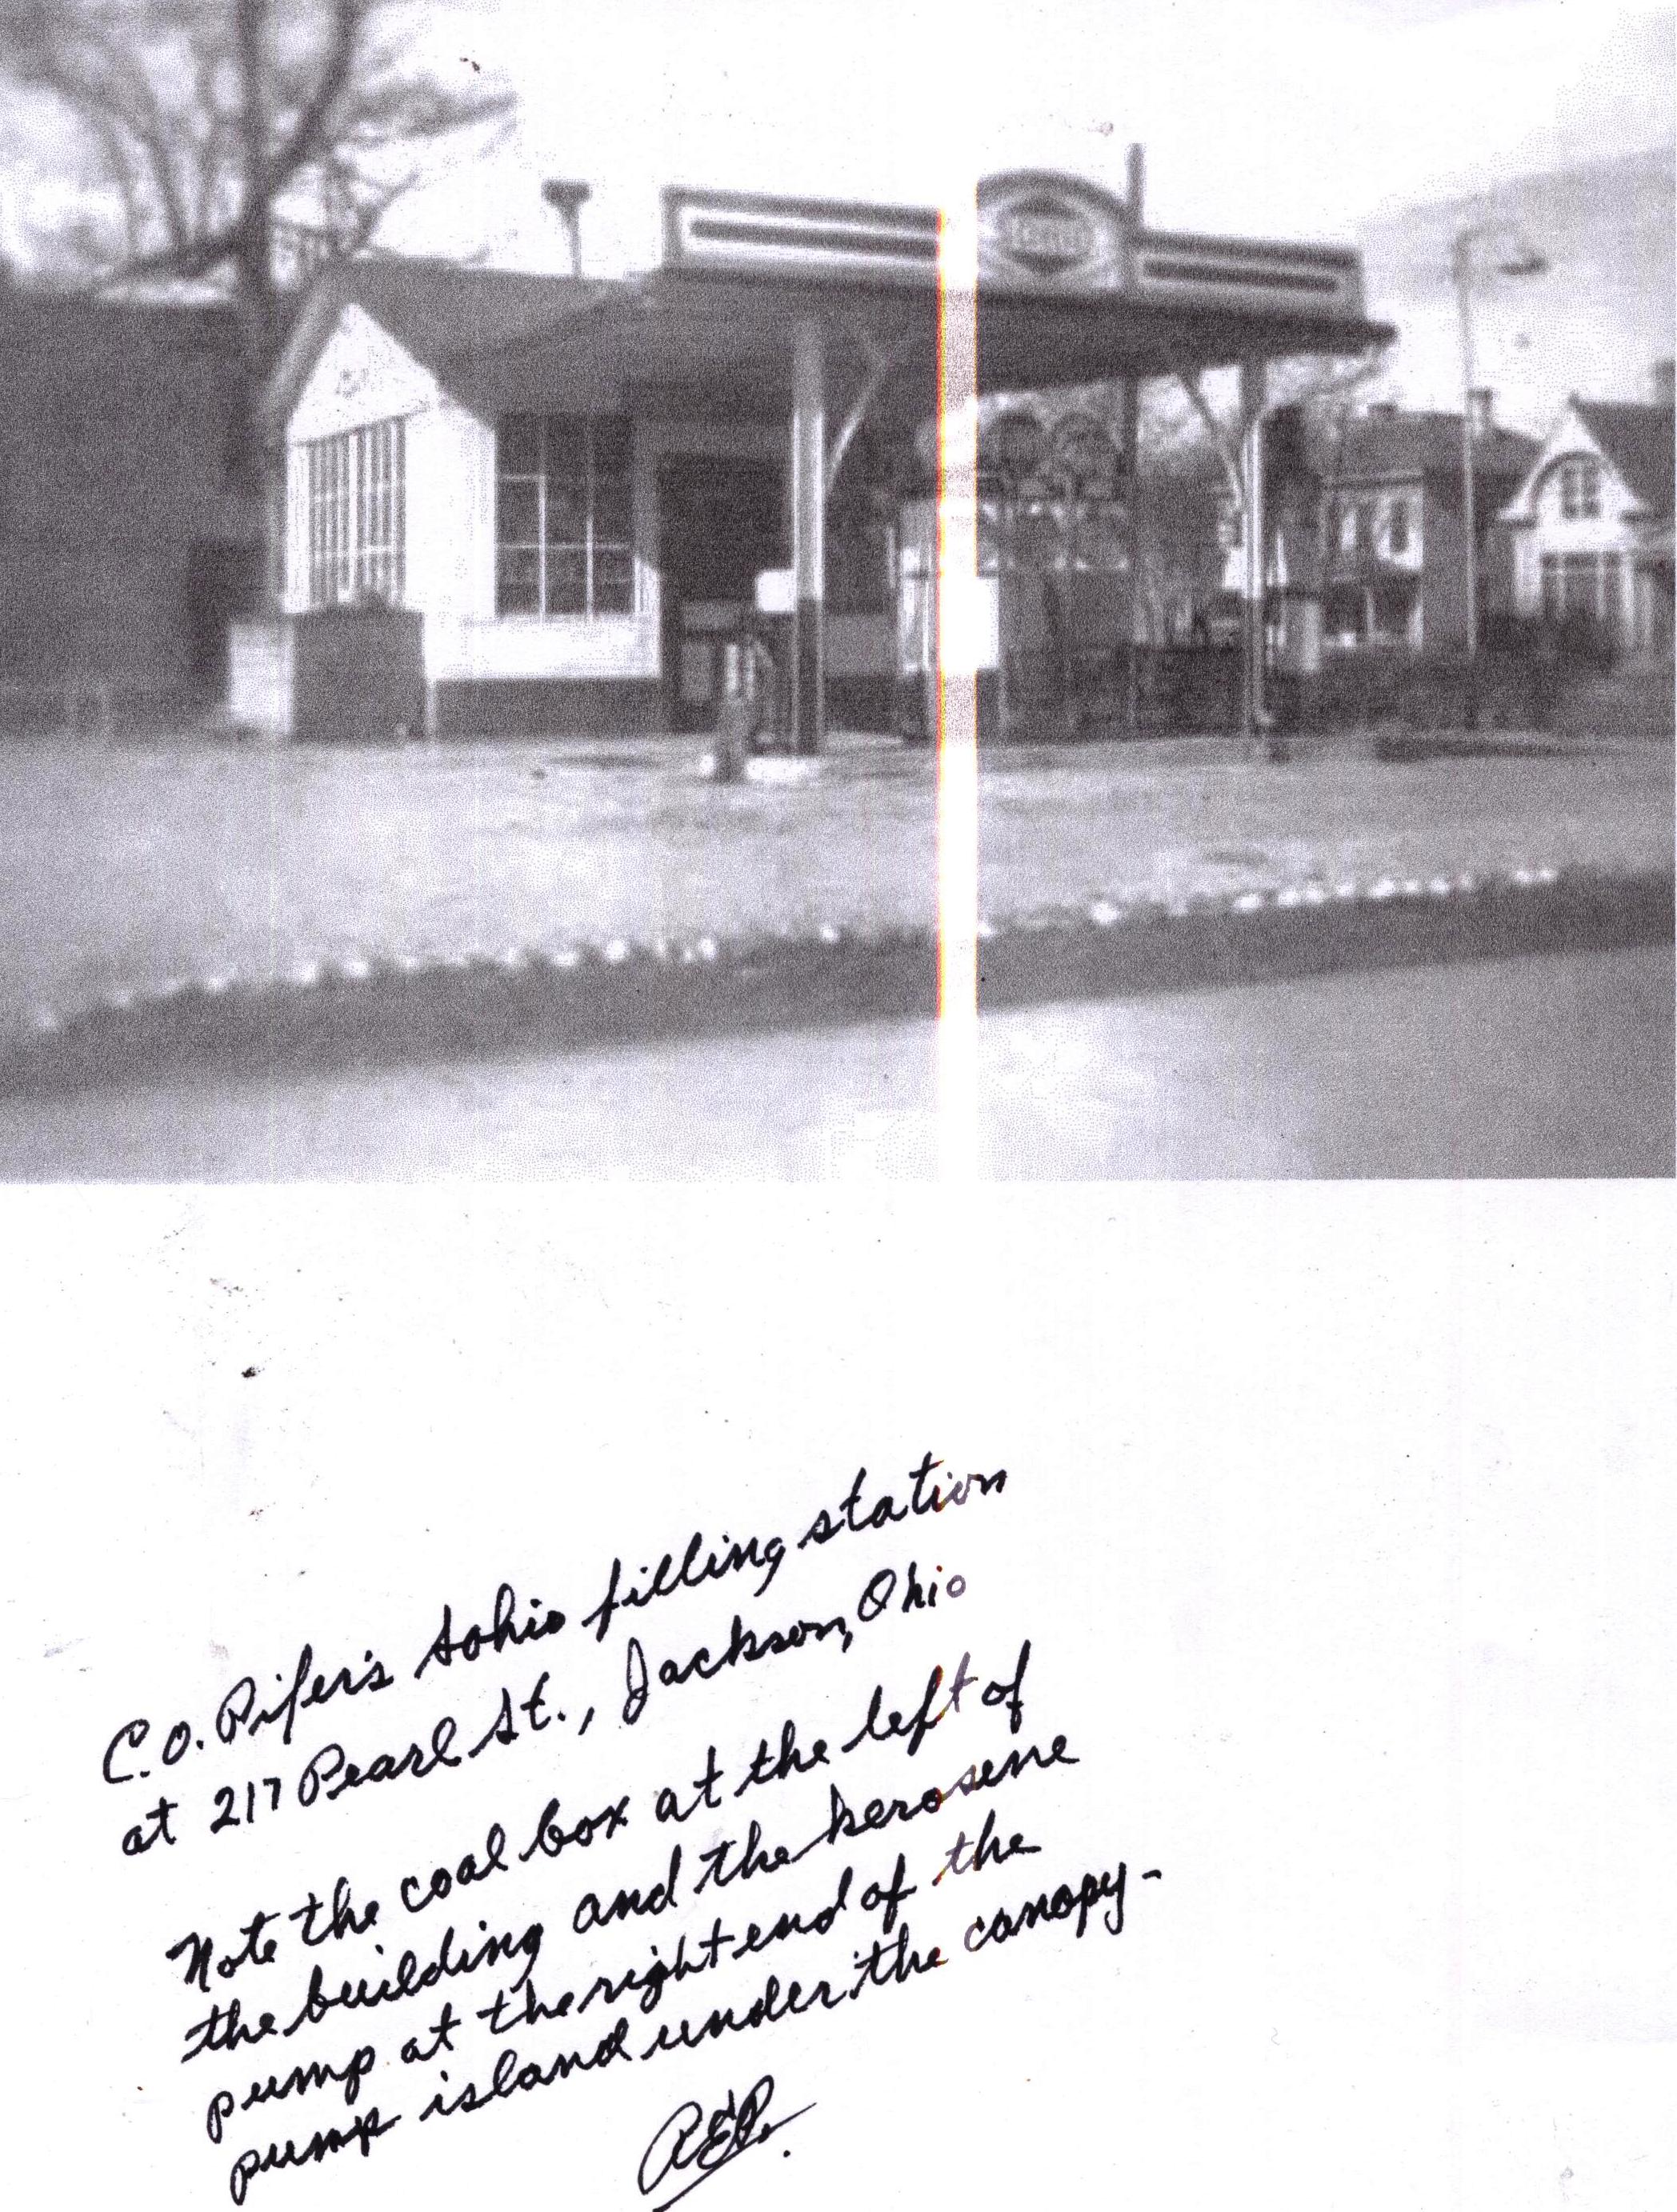 C.O. Pifer's Sohio filling station
at 217 Pearl St., Jackson, Ohio
Note the coal box at the left of
the building and the kerosene
pump at the right end of the
pump island under the canopy-
REP.